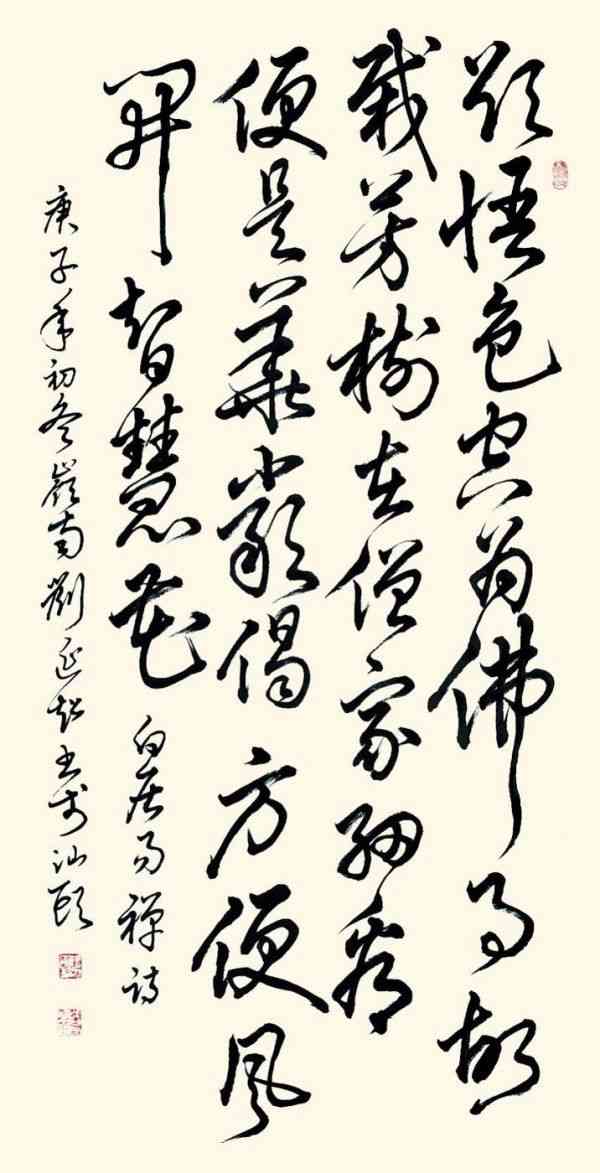 欲悟色空為佛事故
栽芳樹在僧家細看
便是華嚴偈方便風
開智慧花
白居易禪詩
庚子年初冬嶺南劉延超書於汕頭